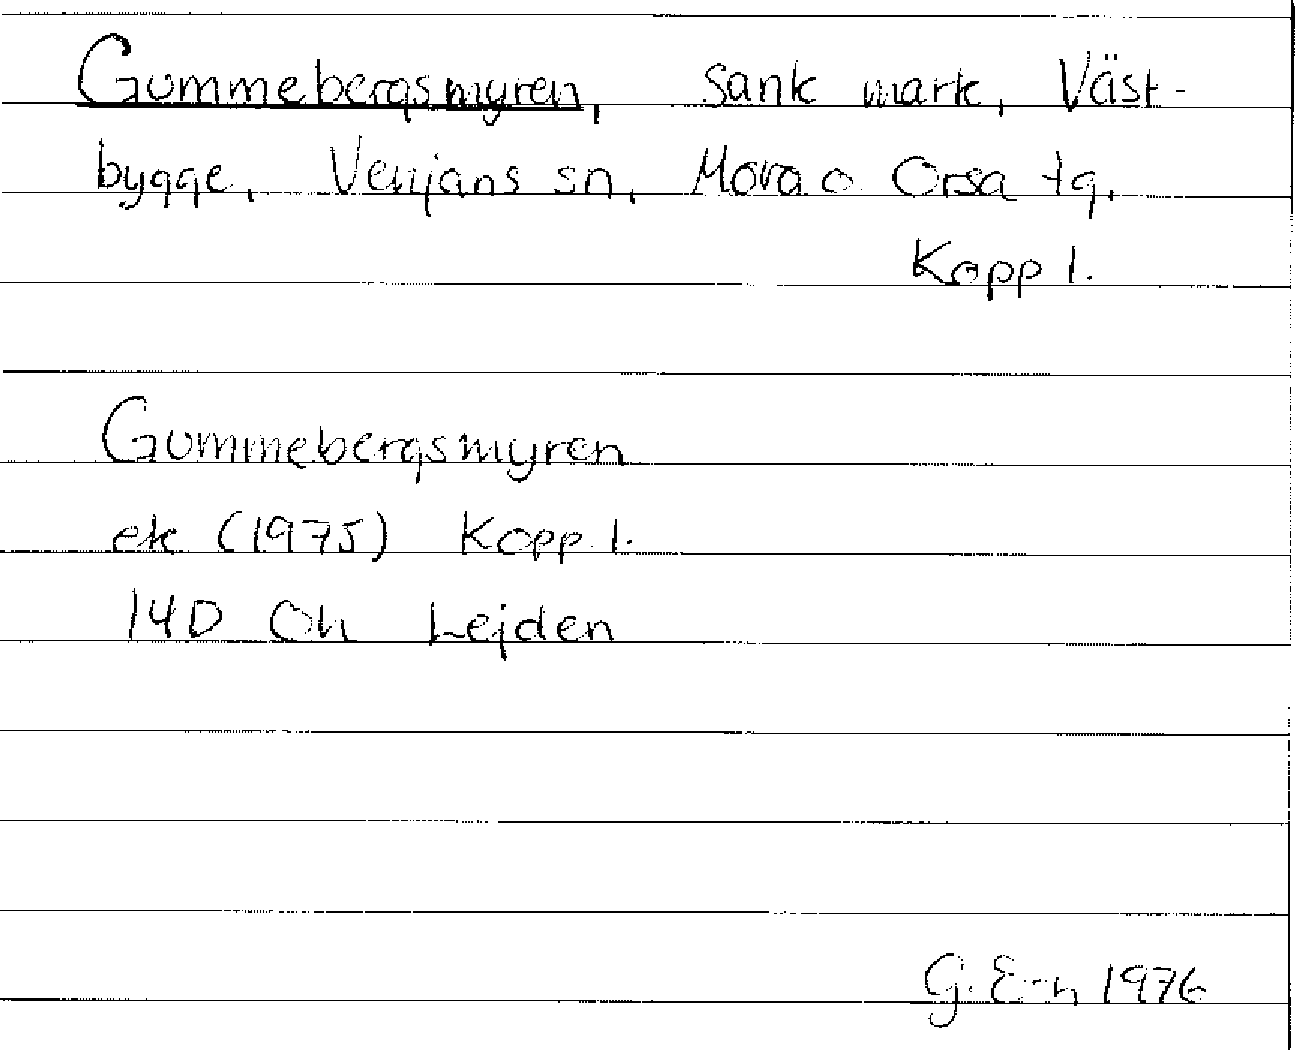 Gummebergsmyren, sank mark, Väst-
bygge, Venjans sn, Mora o Orsa tg,
Kopp l.
Gummebergsmyren
ek (1975) Kopp. l.
14D Oh Lejden
G. E-n 1976